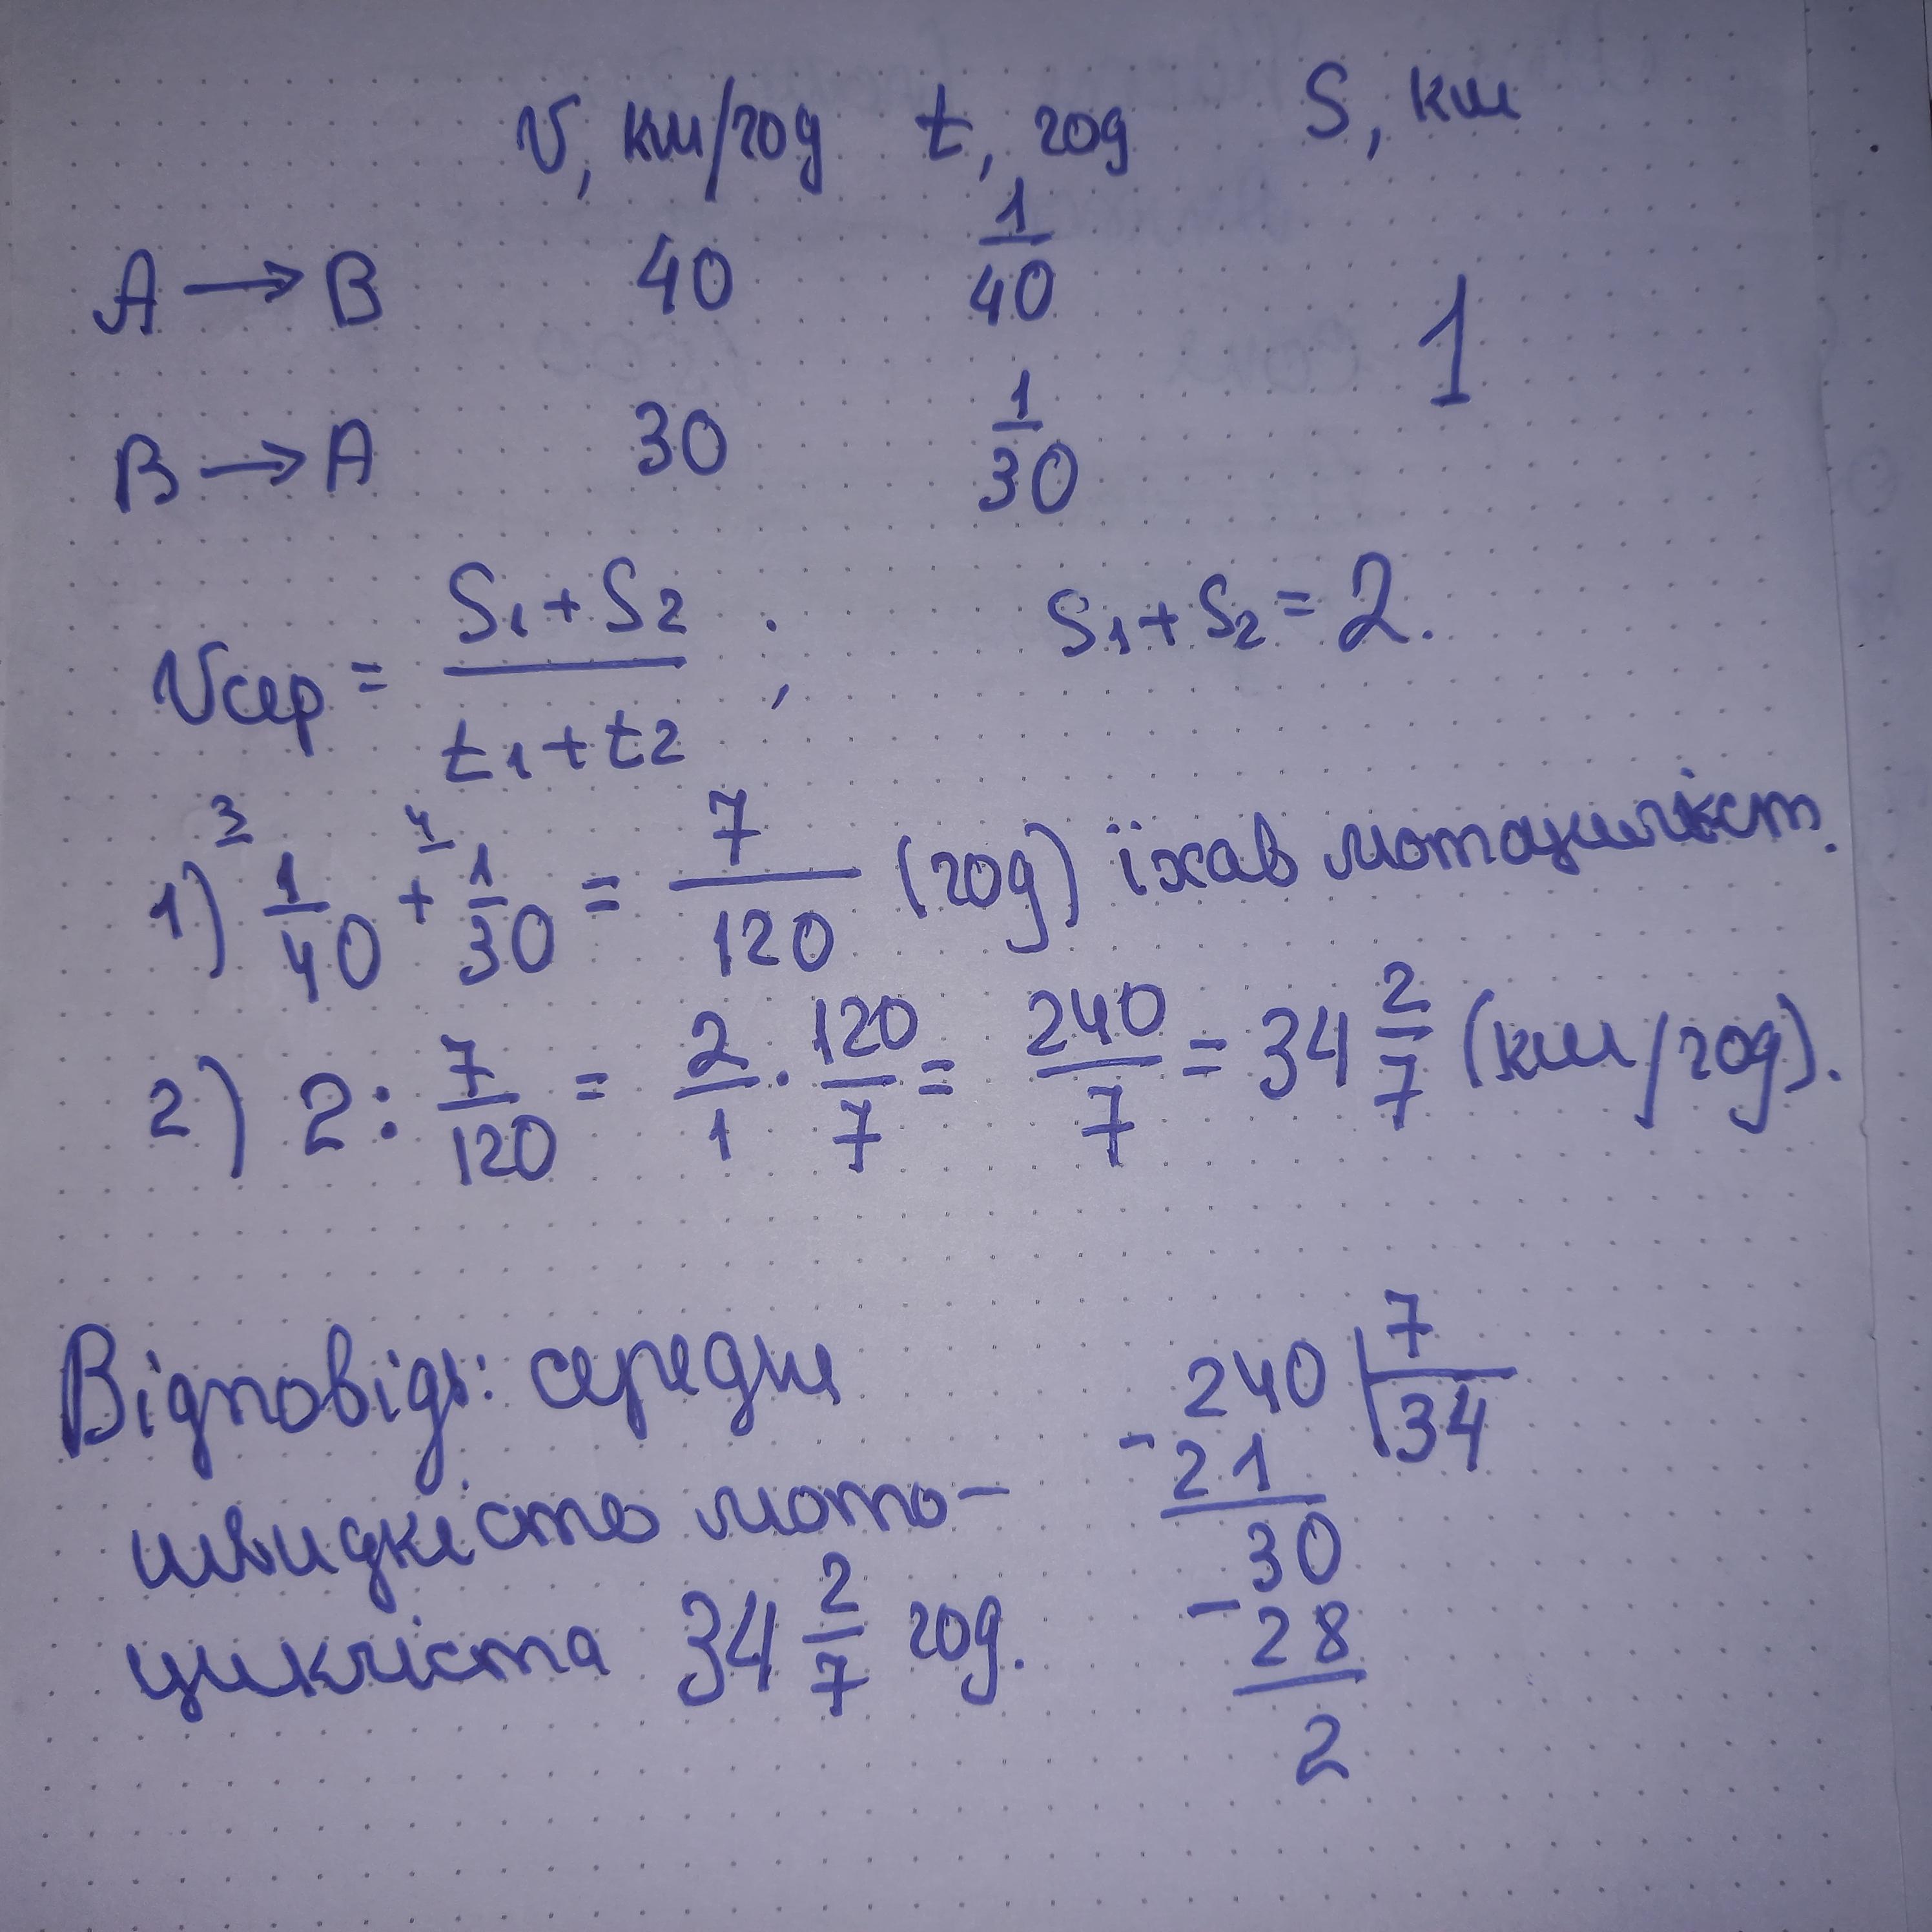 v, км/год t, год S, км
A → B 40 1/40 1
B → A 30 1/30
vсер = (S1+S2)/(t1+t2) ; S1+S2=2.
1) ³1/40 + ⁴1/30 = 7/120 (год) їхав мотоцикліст.
2) 2 : 7/120 = 2/1 · 120/7 = 240/7 = 34 2/7 (км/год).
Відповідь: середня
швидкість мото-
цикліста 34 2/7 год.
240 | 7
- 21 | 34
30
- 28
2